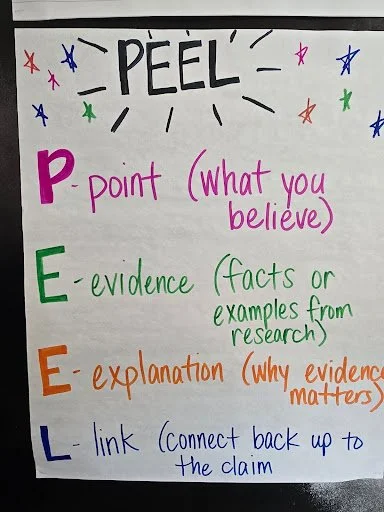 PEEL
P - point (what you
believe)
E - evidence (facts or
examples from
research)
E - explanation (why evidence
matters)
L - link (connect back up to
the claim